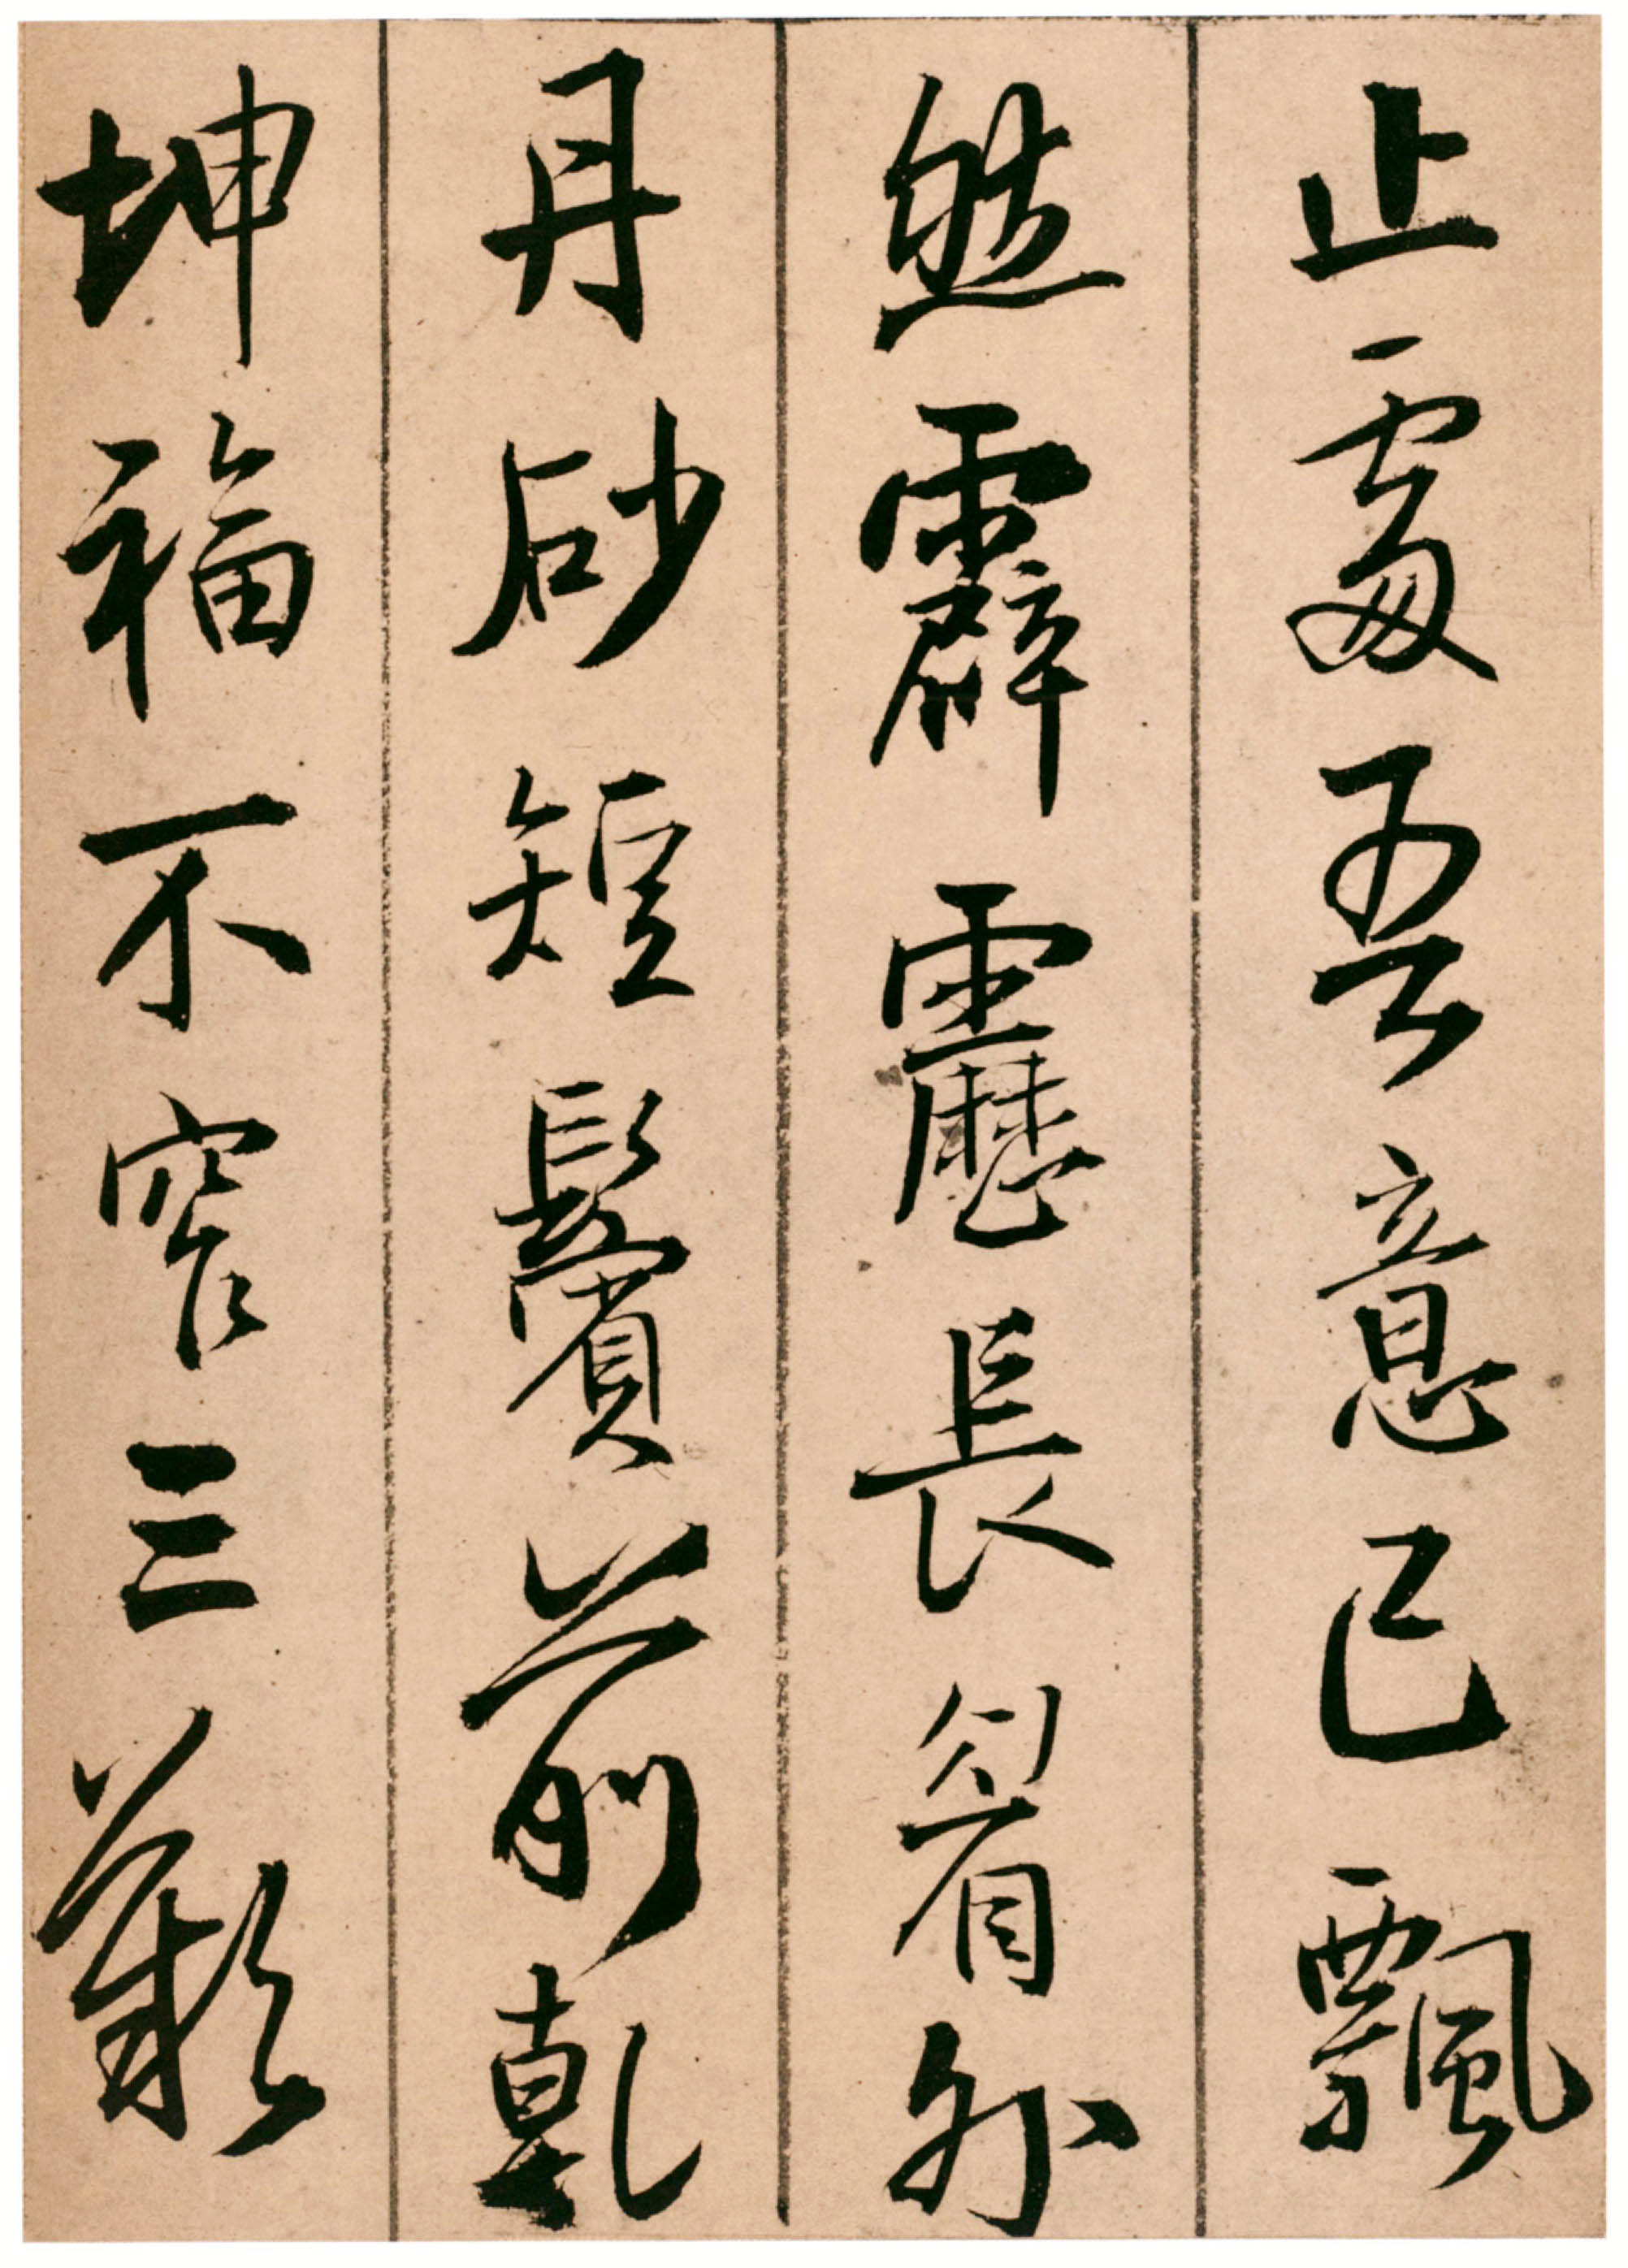 止處吾意已飄
然霹靂長看外
丹砂短鬢前乾
坤福不窄三嘆